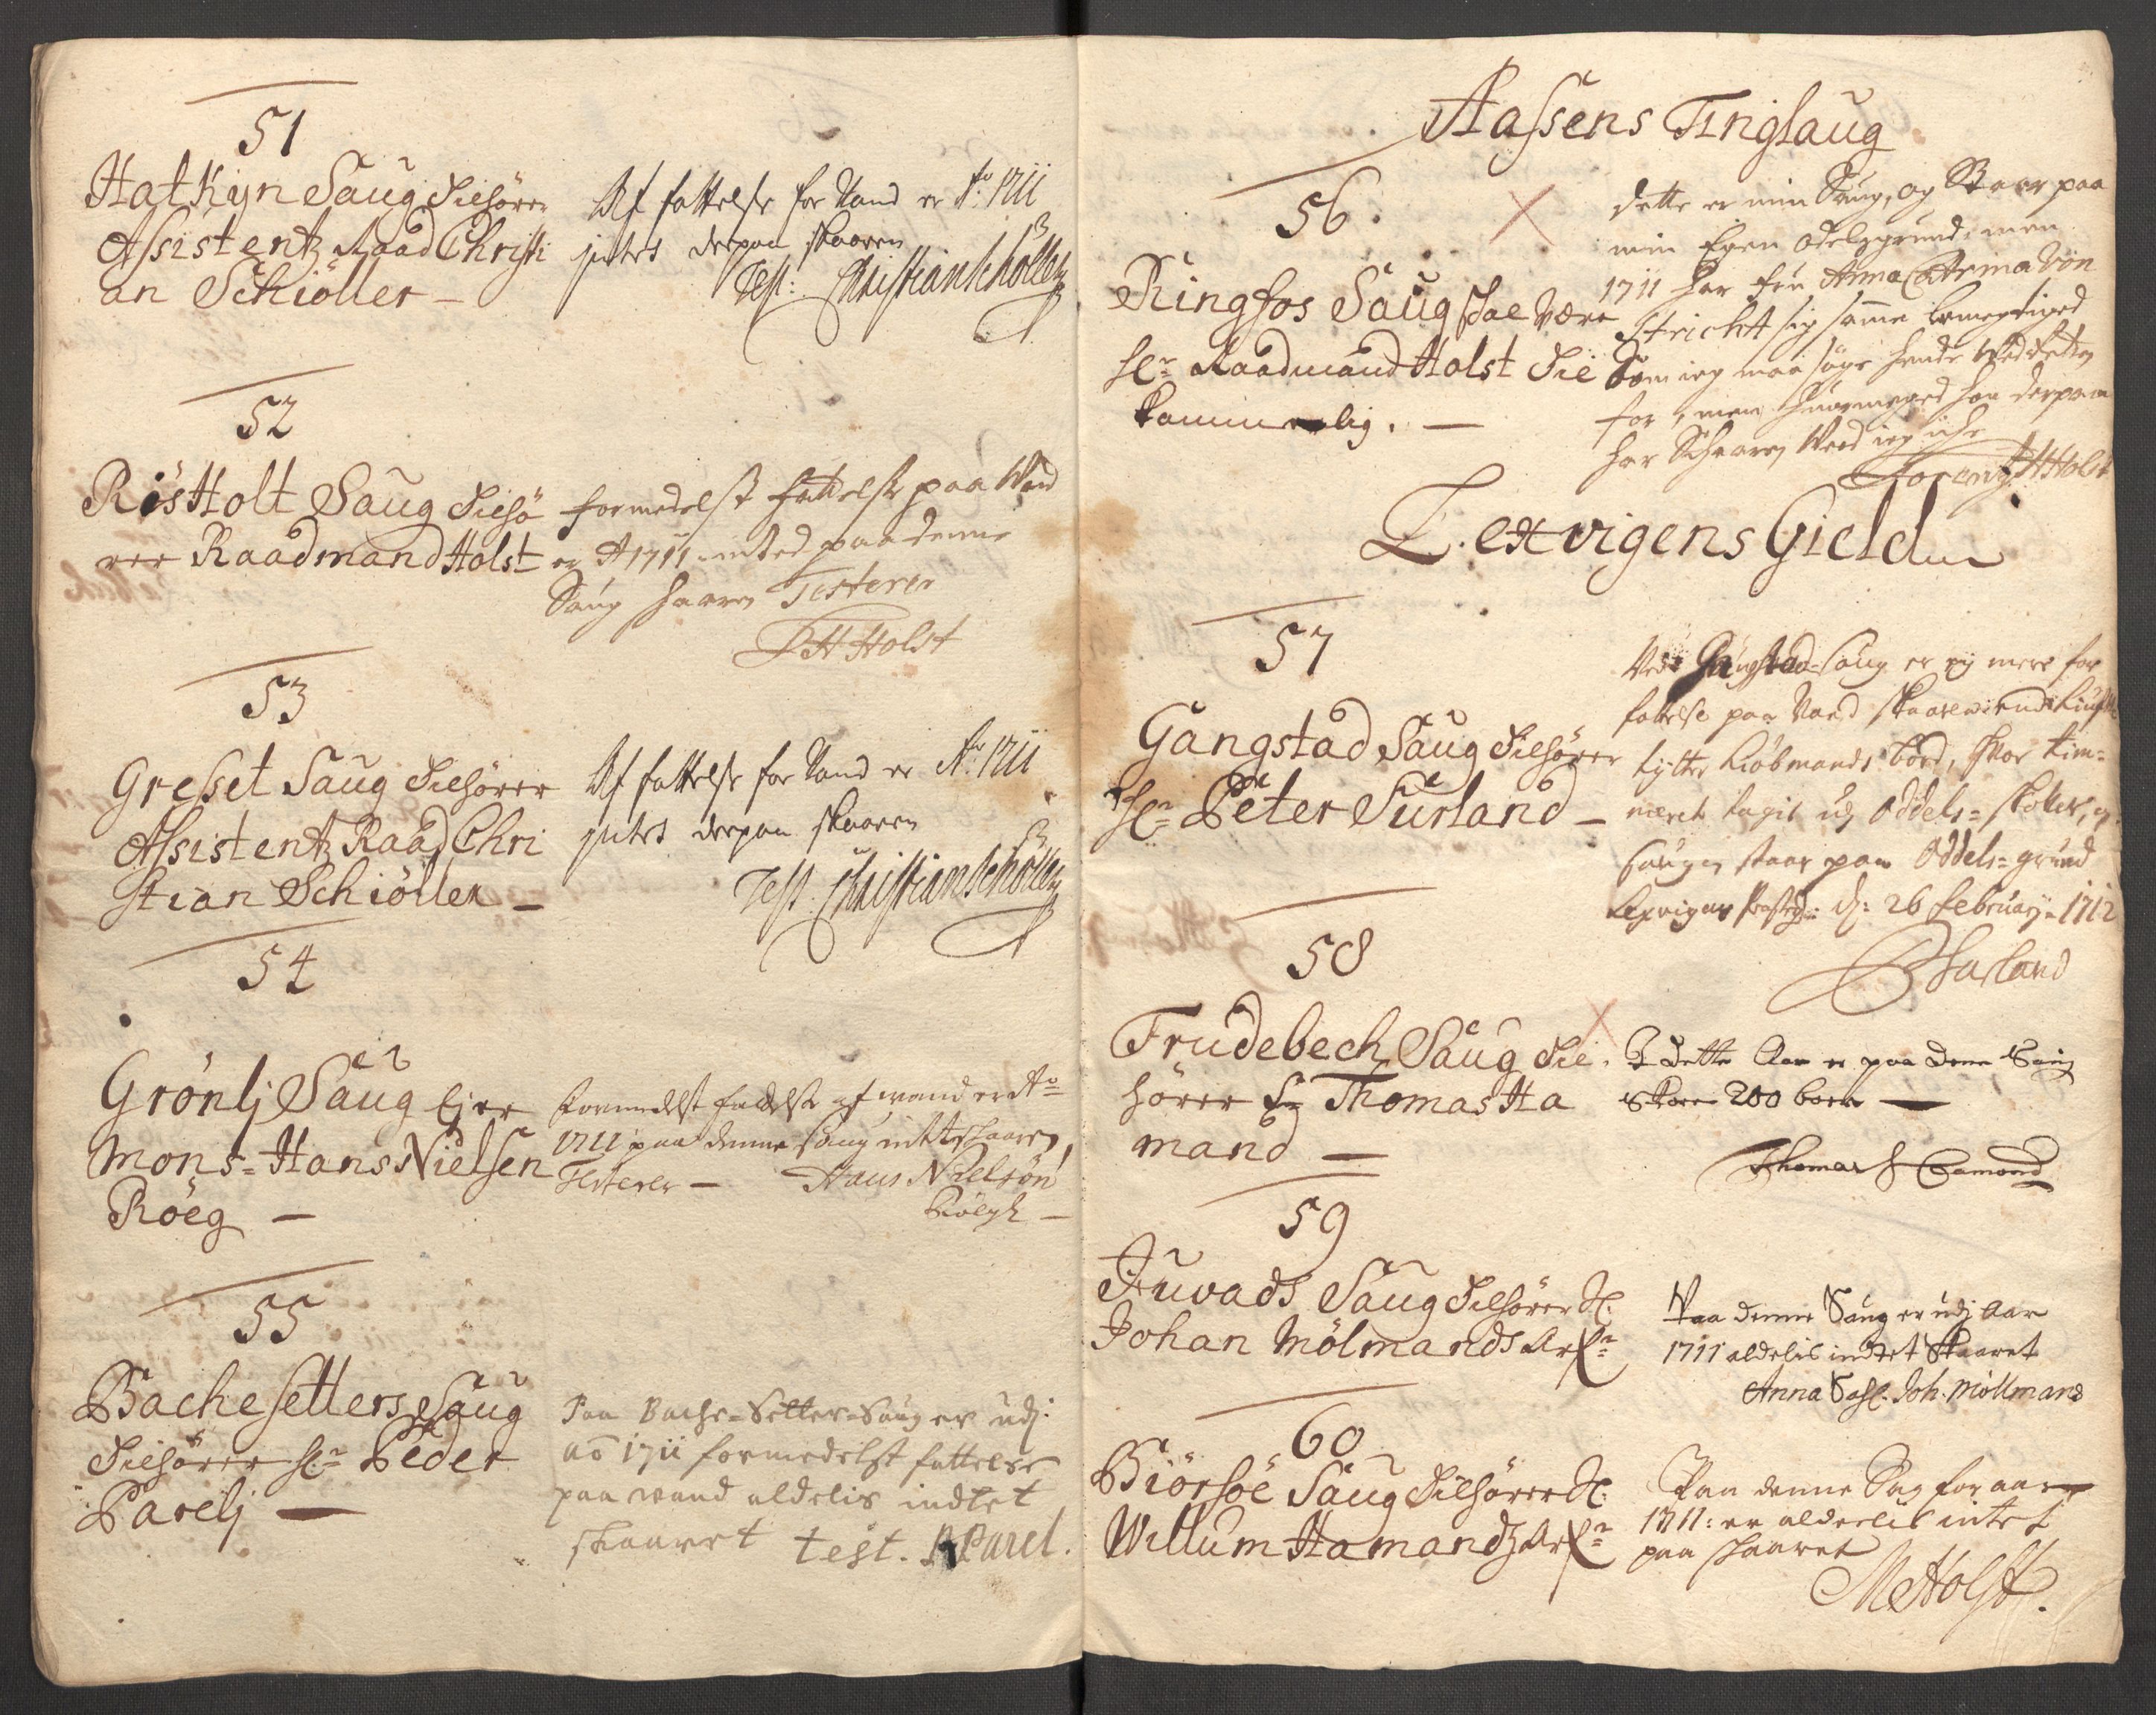 51
Hatkyn Saug Tilhører
Assistentz Raad Christi
an Schiöller –
Af fattelse for Vand er Ao: 1711
intet derpaa skaaren
Test: Christian Schöller
52
Risholt Saug Tilhö
rer Raadmand Holst
formedelst fattelse paa Vand
er Ao 1711 inted paa denne
Saug skaaren Testerer
LH Holst
53
Gresset Saug Tilhörer
Assistentz Raad Chri
stian Schiöller –
Af fattelse for Vand er Ao: 1711
intet derpaa skaaren
Test: Christian Schöller
54
Grönlj Saug Ejer
Mons= Hans Nielsen
Röeg –
formedelst fattelse af wand er Ao=
1711 paa denne Saug intet skaaren,
Testerer – Hans Nielsön
Röegh –
55
Bachesetters Saug
Tilhörer Sr Peder
Parelj —
Paa Bache=Setter=Saug er udj:
ao 1711 formedelst fattelse
paa wand aldelis indtet
skaaret test. P Parel.
Aassens Tinglaug
56.
Ringfos Saug skal være
Sr Raadmand Holst Til
kommelig. —
dette er min Saug, og staar paa
min Egen odelsgrund, men
1711 har fru Anna Catrina Von
Stricht sig samme bemegtiged
Som ieg maa søge hende ved Retten
for, men huormeged hun derpaa
har Skaaren Veed ieg iche
Lorentz H Holst
Lexvigens Gield
57
Gangstad Saug Tilhörer
Sr Peter Surland –
Ved Gangstad=Saug er ej mere for
fattelse paa Vand skaaren
Kiöbmands bord, huor tim=
meret tagit udj Oddels= skoven, og
Saugen staar paa Oddels= grund
Lexvigens Præstegr: d: 26 February 1712
P Surland
58
Frudebech Saug Til
hörer Sr Thomas Ha
mand —
I dette Aar er paa denne Saug
Skoren 200 bord —
Thomas Hamond
59
Juvads Saug Tilhörer Sl:
Johan Mölmands Arfr=
Paa denne Saug er udj Aar
1711 aldelis indtet Skaaret
Anna Sal. Joh. Möllmans
60
Biörsöe Saug Tilhörer Sl:
Willum Hamandz Arfr=
Paa denne Sag for aar
1711: er aldeelis intet
paa skaaret
M Holst.